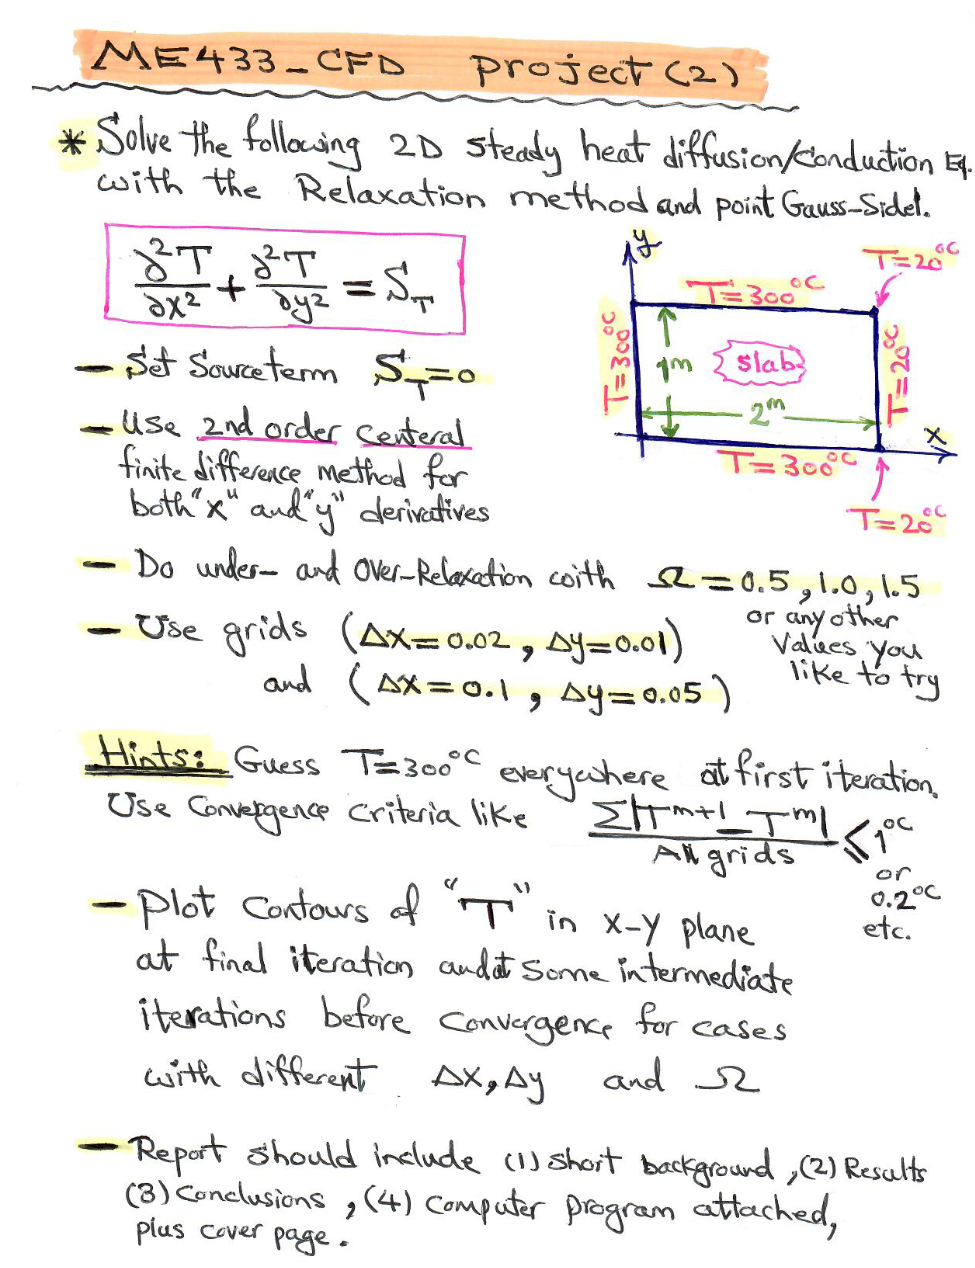 ME433_CFD project (2)
* Solve the following 2D steady heat diffusion/conduction Eq.
with the Relaxation method and point Gauss-Sidel.
∂²T/∂x² + ∂²T/∂y² = S_T
y
T=20°C
T=300°C
T=300°C
1m
slab
T=20°C
2m
x
T=300°C
T=20°C
- Set Source term S_T=0
- Use 2nd order Centeral
finite difference method for
both "x" and "y" derivatives
- Do under- and Over-Relaxation with Ω = 0.5, 1.0, 1.5
or any other
Values you
like to try
- Use grids (Δx=0.02, Δy=0.01)
and (Δx=0.1, Δy=0.05)
Hints: Guess T=300°C everywhere at first iteration.
Use Convergence Criteria like Σ|T^m+1 - T^m| / All grids ≤ 1°C
or
0.2°C
etc.
- Plot Contours of "T" in x-y plane
at final iteration and at some intermediate
iterations before convergence for cases
with different Δx, Δy and Ω
- Report should include (1) short background, (2) Results
(3) Conclusions, (4) Computer program attached,
plus cover page.